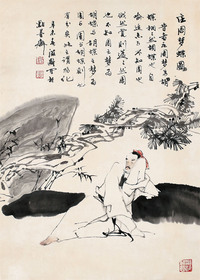 莊周夢蝶圖
昔者莊周夢為胡
蝶栩栩然胡蝶也自
喻適志與不知周也
俄然覺則蘧蘧然周
也不知周之夢為
胡蝶與胡蝶之夢為
周與周與胡蝶則必
有分矣此之謂物化
辛未年